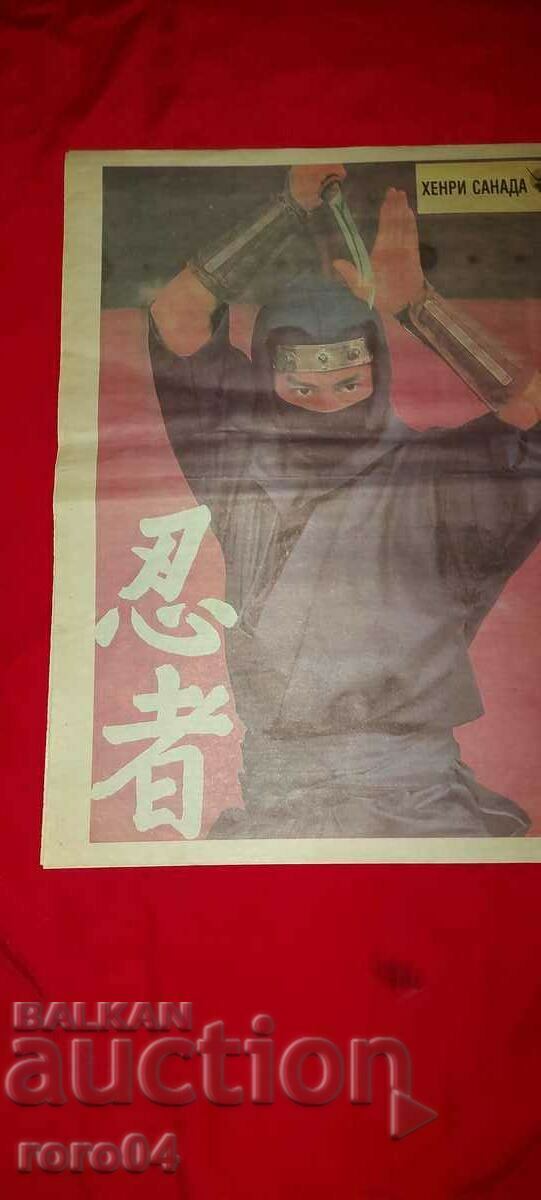 ХЕНРИ САНАДА
忍者
BALKAN
auction
roro04